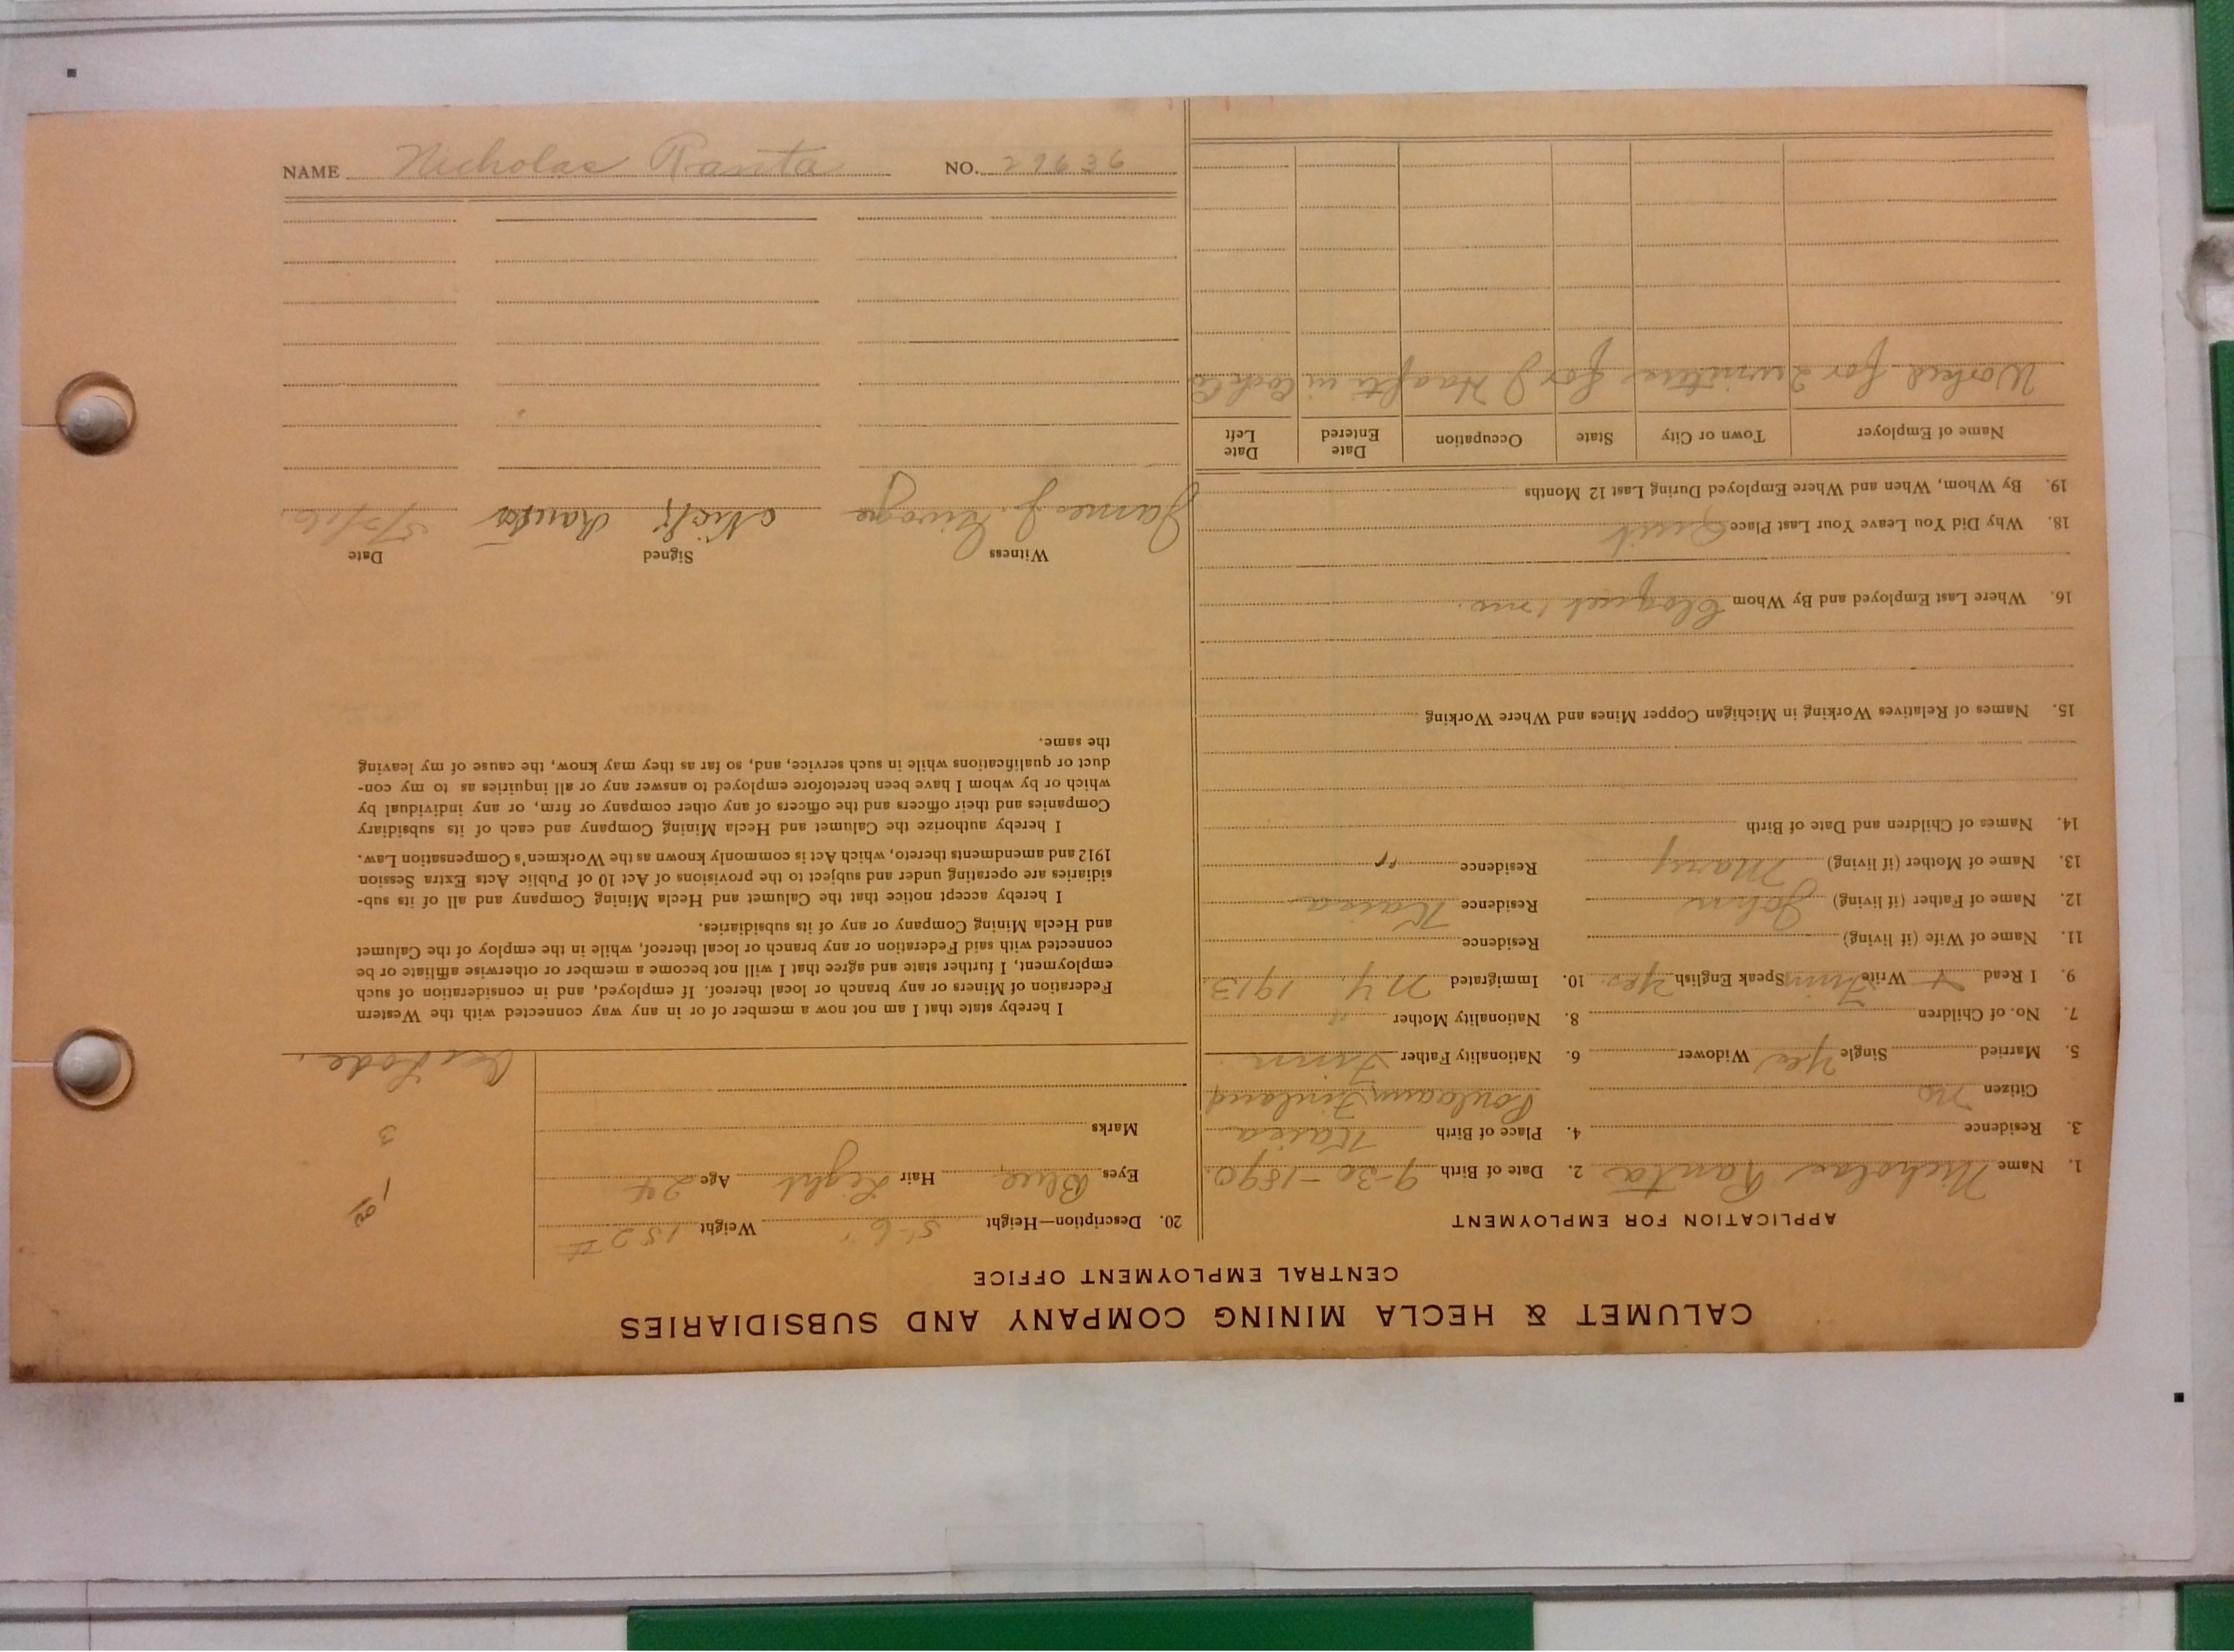 CALUMET & HECLA MINING COMPANY AND SUBSIDIARIES
CENTRAL EMPLOYMENT OFFICE
APPLICATION FOR EMPLOYMENT
1. Name Nicholas Ranta 2. Date of Birth 9-30-1890
3. Residence 4. Place of Birth Kaira
Citizen no Finland
5. Married Single Yes Widower 6. Nationality Father Finn
7. No. of Children 8. Nationality Mother "
9. I Read + Write Finn Speak English Yes. 10. Immigrated N.Y. 1913.
11. Name of Wife (if living) Residence
12. Name of Father (if living) John Residence Kaira
13. Name of Mother (if living) Mary Residence "
14. Names of Children and Date of Birth
15. Names of Relatives Working in Michigan Copper Mines and Where Working
16. Where Last Employed and By Whom
18. Why Did You Leave Your Last Place Quit
19. By Whom, When and Where Employed During Last 12 Months
Name of Employer Town or City State Occupation Date Entered Date Left
Worked for 2 winters for J Haafti in
20. Description—Height 5-6 Weight 152 #
Eyes Blue Hair Light Age 24
Marks
3
I hereby state that I am not now a member of or in any way connected with the Western
Federation of Miners or any branch or local thereof. If employed, and in consideration of such
employment, I further state and agree that I will not become a member or otherwise affiliate or be
connected with said Federation or any branch or local thereof, while in the employ of the Calumet
and Hecla Mining Company or any of its subsidiaries.
I hereby accept notice that the Calumet and Hecla Mining Company and all of its sub-
sidiaries are operating under and subject to the provisions of Act 10 of Public Acts Extra Session
1912 and amendments thereto, which Act is commonly known as the Workmen's Compensation Law.
I hereby authorize the Calumet and Hecla Mining Company and each of its subsidiary
Companies and their officers and the officers of any other company or firm, or any individual by
which or by whom I have been heretofore employed to answer any or all inquiries as to my con-
duct or qualifications while in such service, and, so far as they may know, the cause of my leaving
the same.
Witness Signed Date
James J.
NAME Nicholas Ranta NO. 29636